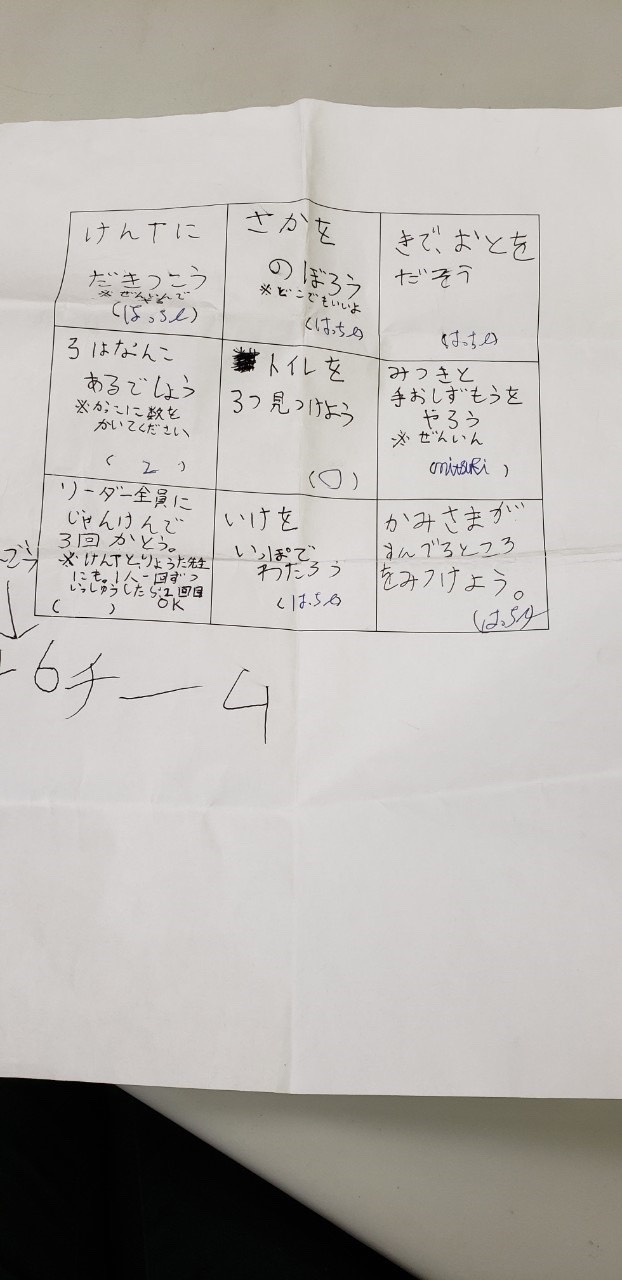 けんTに
だきつこう
※ぜんいんで
(はっちe)
さかを
のぼろう
※どこでもいいよ
(はっちe)
きで、おとを
だそう
(はっちe)
ろはなんこ
あるでしょう
※かっこに数を
かいてください
(2)
トイレを
3つ見つけよう
(〇)
みつきと
手おしずもうを
やろう
※ぜんいん
(mitsuki)
リーダー全員に
じゃんけんで
3回かとう。
※けんTとりょうた先生
にも。1人一回ずつ
いっしゅうしたら2回目
( ) OK
いけを
いっぽで
わたろう
(はっちe)
かみさまが
すんでるところ
をみつけよう。
(はっちe)
6チーム